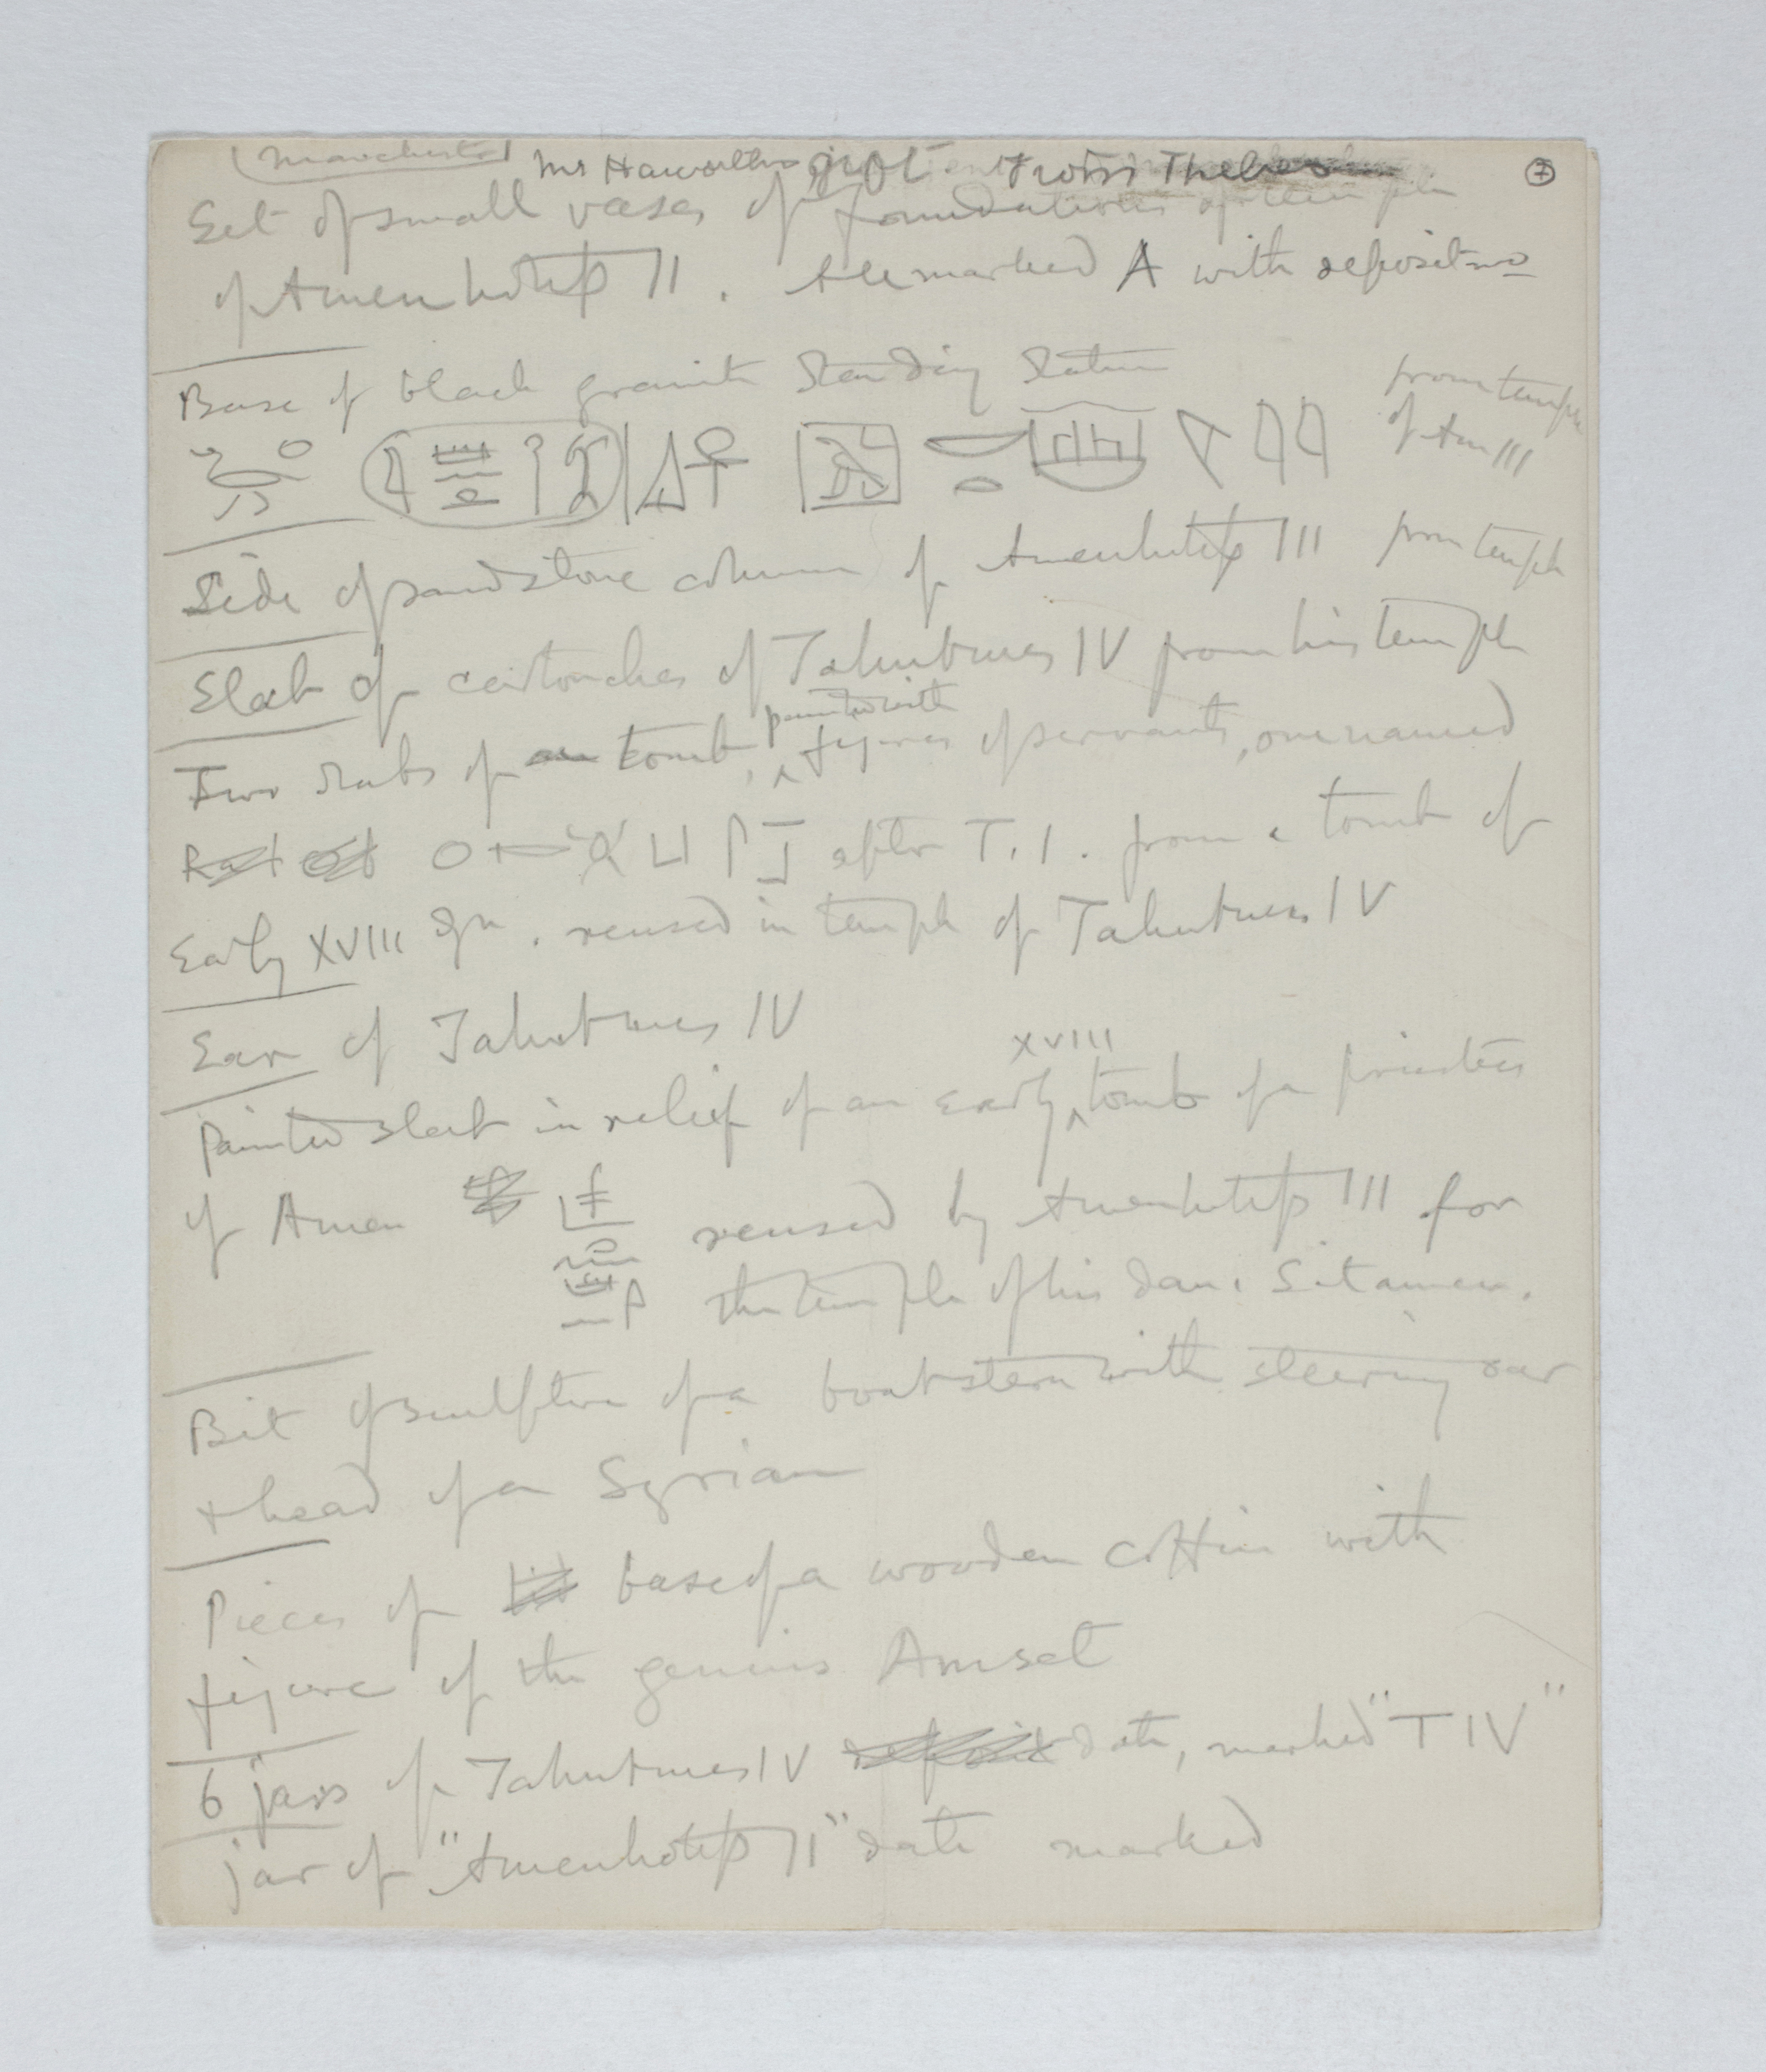 Manchester Mr Haworth's gift from Thebes 7
Set of small vases of foundations of temple
of Amenhotep II. All marked A with deposit no
Base of black granite standing statue from temple
of Am III
Side of sandstone column of Amenhotep III from temple
Slab of cartouches of Tahutmes IV from his temple
Two slabs of tomb, painted with figures of servants, one named
after T. I. from a tomb of
Early XVIII dyn. reused in temple of Tahutmes IV
Ear of Tahutmes IV
Painted slab in relief of an early XVIII tomb of a priestess
of Amen reused by Amenhotep III for
the temple of his dau. Sitamen.
Bit of sculpture of a boat stern with steering oar
+ head of a Syrian
Pieces of base of a wooden coffin with
figure of the genius Amset
6 jars of Tahutmes IV date, marked "T IV"
jar of "Amenhotep II" date marked